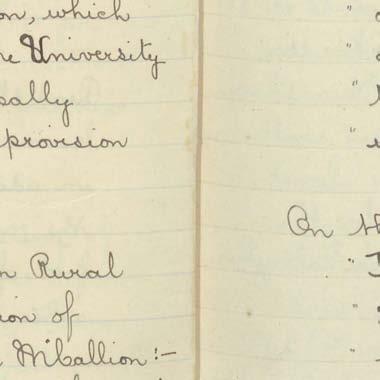 on, which
University
sally
provision
n Rural
ion of
McCallion:-
On
"
"
"
"
"
"
"